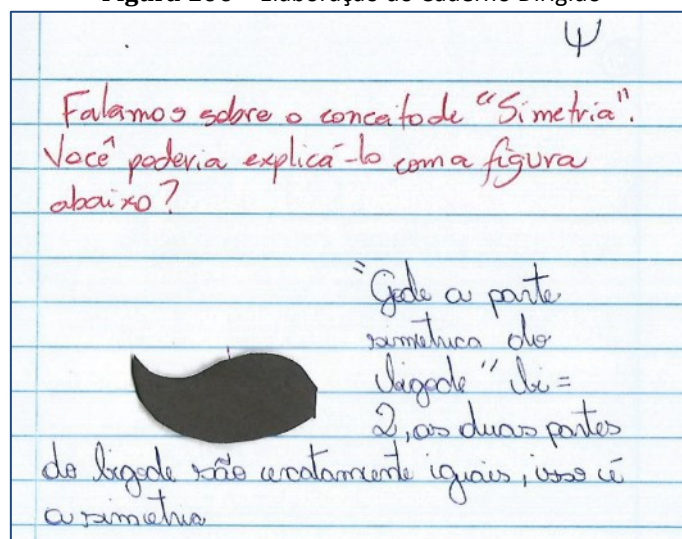 Elaboração do Caderno Dirigido
Ψ
Falamos sobre o conceito de "Simetria".
Você poderia explicá-lo com a figura
abaixo?
"Gode a parte
simetrica do
bigode" bi =
2, as duas partes
do bigode são exatamente iguais, isso é
a simetria